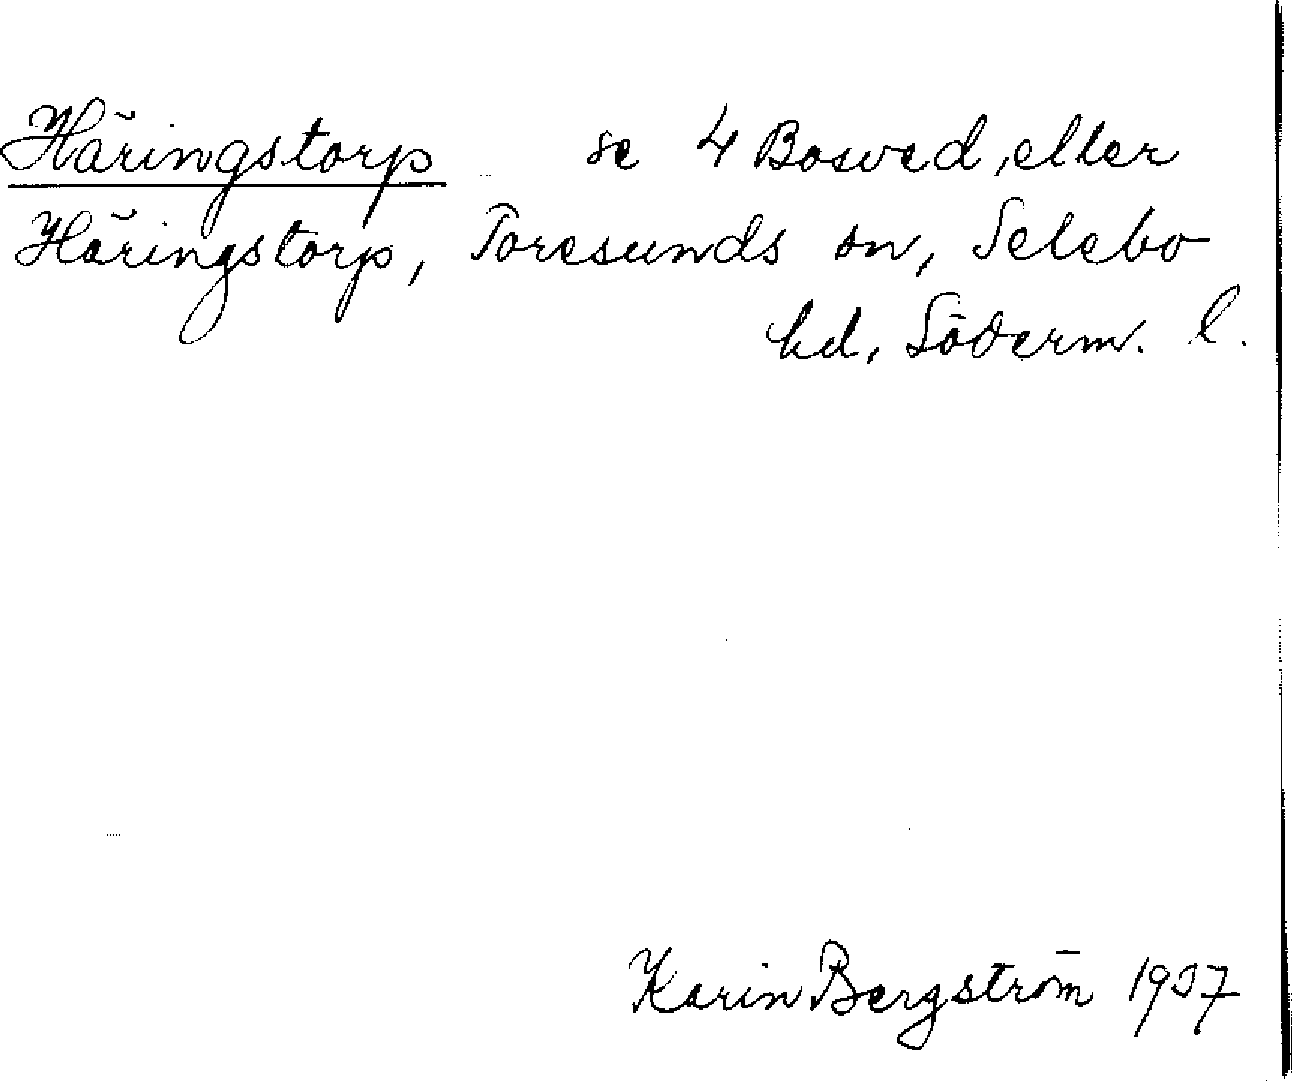 Häringstorp se 4 Bosved, eller
Häringstorp, Toresunds sn, Selebo
hd, Söderm. l.
Karin Bergström 1937